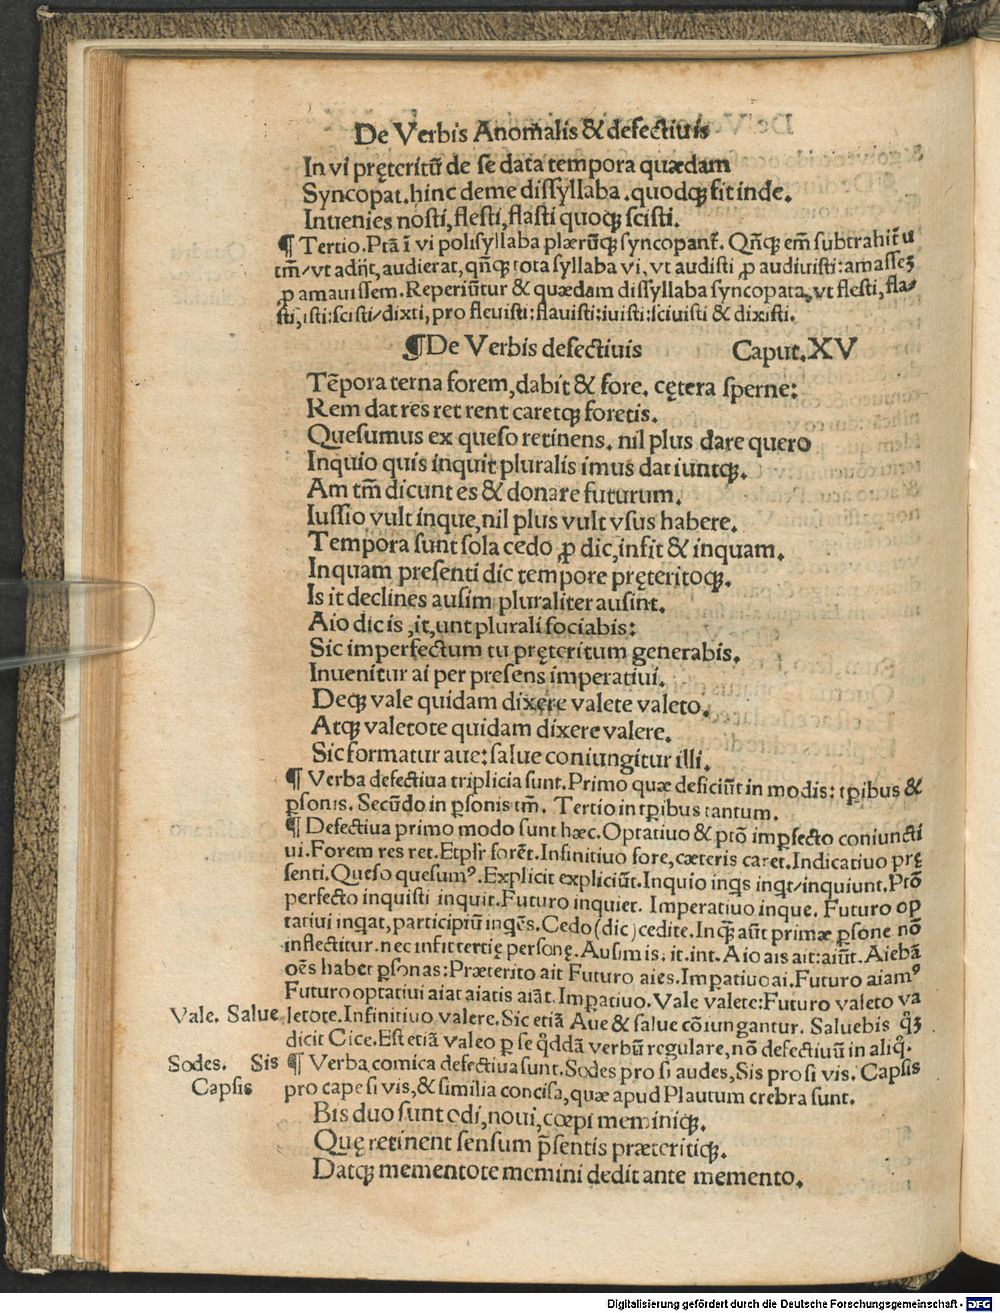 De Verbis Anomalis & defectiuis
In vi pręteritū de se data tempora quædam
Syncopat.hinc deme dissyllaba.quodqꝫ fit inde.
Inuenies nosti, flesti, flasti quoqꝫ scisti.
¶ Tertio.Ptā ī vi polisyllaba plærūqꝫ syncopant᷑. Qñqꝫ em̄ subtrahit᷑ u
tm̄/vt adijt,audierat,qñqꝫ tota syllaba vi, vt audisti ꝓ audiuisti:amasseꝫ
ꝓ amauissem.Reperiūtur & quædam dissyllaba syncopata,vt flesti,fla/
sti,isti:scisti/dixti, pro fleuisti:flauisti:iuisti:sciuisti & dixisti.
¶De Verbis defectiuis Caput.XV
Tēpora terna forem,dabit & fore. cętera sperne:
Rem dat res ret rent caretqꝫ foretis.
Quesumus ex queso retinens. nil plus dare quero
Inquio quis inquit pluralis imus dat iuntqꝫ.
Am tm̄ dicunt es & donare futurum.
Iussio vult inque,nil plus vult vsus habere.
Tempora sunt sola cedo ꝓ dic,infit & inquam.
Inquam presenti dic tempore pręteritoqꝫ.
Is it declines ausim pluraliter ausint.
Aio dic is ,it,unt plurali sociabis:
Sic imperfectum tu pręteritum generabis.
Inuenitur ai per presens imperatiui.
Deqꝫ vale quidam dixere valete valeto.
Atqꝫ valetote quidam dixere valere.
Sic formatur aue:salue coniungitur illi.
¶ Verba defectiua triplicia sunt.Primo quæ deficiūt in modis: tꝑibus &
ꝑsonis. Secūdo in ꝑsonis tm̄. Tertio in tꝑibus tantum.
¶ Defectiua primo modo sunt hæc.Optatiuo & ptō imꝑfecto coniuncti
ui.Forem res ret.Etpl'r forēt.Infinitiuo fore,cæteris caret.Indicatiuo prę
senti.Queso quesumꝰ.Explicit expliciūt.Inquio inqs inqt/inquiunt.Ptō
perfecto inquisti inquit.Futuro inquiet. Imperatiuo inque. Futuro op
tatiui inqat,participiū inqēs.Cedo(dic)cedite.Inqꝫ aūt primæ ꝑsone nō
inflectitur.nec infit tertię personę.Ausim is. it.int. Aio ais ait:aiūt.Aiebā
oēs habet ꝑsonas:Præterito ait Futuro aies.Imꝑatiuo ai.Futuro aiamꝰ
Futuro optatiui aiat aiatis aiāt.Imꝑatiuo.Vale valete:Futuro valeto va
Vale. Salue letote.Infinitiuo valere.Sic etiā Aue & salue cōiungantur. Saluebis q̄ꝫ
dicit Cice.Est etiā valeo ꝑ se q̄ddā verbū regulare,nō defectiuū in aliq̄.
Sodes. Sis ¶ Verba comica defectiua sunt.Sodes pro si audes,Sis pro si vis. Capsis
Capsis pro cape si vis,& similia concisa,quæ apud Plautum crebra sunt.
Bis duo sunt odi,noui,cœpi meminiqꝫ.
Quę retinent sensum p̄sentis præteritiqꝫ.
Datqꝫ mementote memini dedit ante memento.
Digitalisierung gefördert durch die Deutsche Forschungsgemeinschaft - DFG